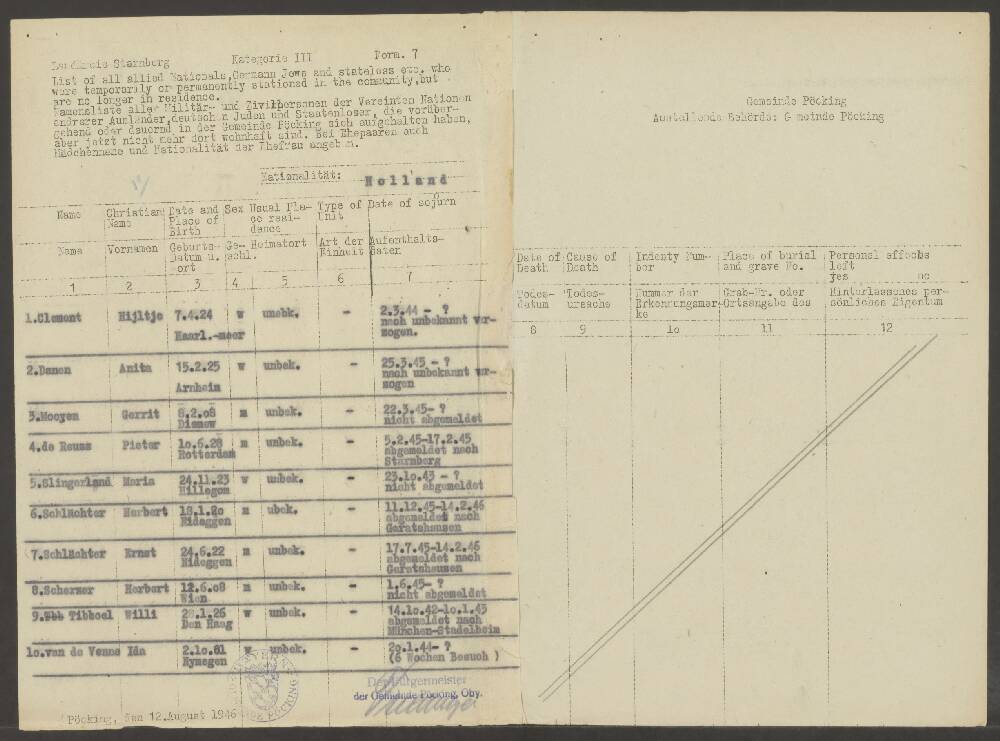 Landkreis Starnberg Kategorie III Form. 7
List of all allied Nationals, Germann Jews and stateless etc. who
were temporarily or permanently stationed in the community, but
are no longer in residence.
Namensliste aller Militär- und Zivilpersonen der Vereinten Nationen
anderer Ausländer, deutschen Juden und Staatenloser, die vorüber-
gehend oder dauernd in der Gemeinde Pöcking sich aufgehalten haben,
aber jetzt nicht mehr dort wohnhaft sind. Bei Ehepaaren auch
Mädchenname und Nationalität der Ehefrau angeben.
Nationalität: Holland
Name Christian Name Date and Place of Birth Sex Usual Place of residence Type of Unit Date of sojurn
Name Vornamen Geburts-Datum u. ort Ge-schl. Heimatort Art der Einheit Aufenthalts-daten
1 2 3 4 5 6 7
1.Clement Hijltje 7.4.24 w unebk. - 2.3.44 - ?
Haarl.-meer nach unbekannt ver-
zogen.
2.Danen Anita 15.2.25 w unbek. - 25.3.45 - ?
Arnheim nach unbekannt ver-
zogen
3.Mooyen Gerrit 8.2.08 m unbek. - 22.3.45- ?
nicht abgemeldet
4.de Reuss Pieter 10.6.28 m unbek. - 5.2.45-17.2.45
Rotterdam abgemeldet nach
Starnberg
5.Slingerland Maria 24.11.23 w unbek. - 23.10.43 - ?
Hillegom nicht abgemeldet
6.Schlächter Herbert 18.1.20 m ubek. - 11.12.45-14.2.46
Nideggen abgemeldet nach
Garatshausen
7.Schlächter Ernst 24.6.22 m unbek. - 17.7.45-14.2.46
Nideggen abgemeldet nach
Garatshausen
8.Scherzer Herbert 12.6.08 m unbek. - 1.6.45- ?
Wien nicht abgemeldet
9. Tibboel Willi 28.1.26 w unbek. - 14.10.42-10.1.43
Den Haag abgemeldet nach
München-Stadelheim
10.van de Venne Ida 2.10.81 w unbek. - 20.1.44- ?
Nymegen (6 Wochen Besuch )
Der Bürgermeister
der Gemeinde Pöcking, Oby.
Pöcking, den 12.August 1946
Gemeinde Pöcking
Austellende Behörde: Gemeinde Pöcking
Date of Death Cause of Death Indenty Num-ber Place of burial and grave No. Personal effects left
yes no
Todes-datum Todes-ursache Nummer der Erkennungsmar-ke Grab-Nr. oder Ortsangabe des Hinterlassenes per-sönliches Eigentum
8 9 10 11 12